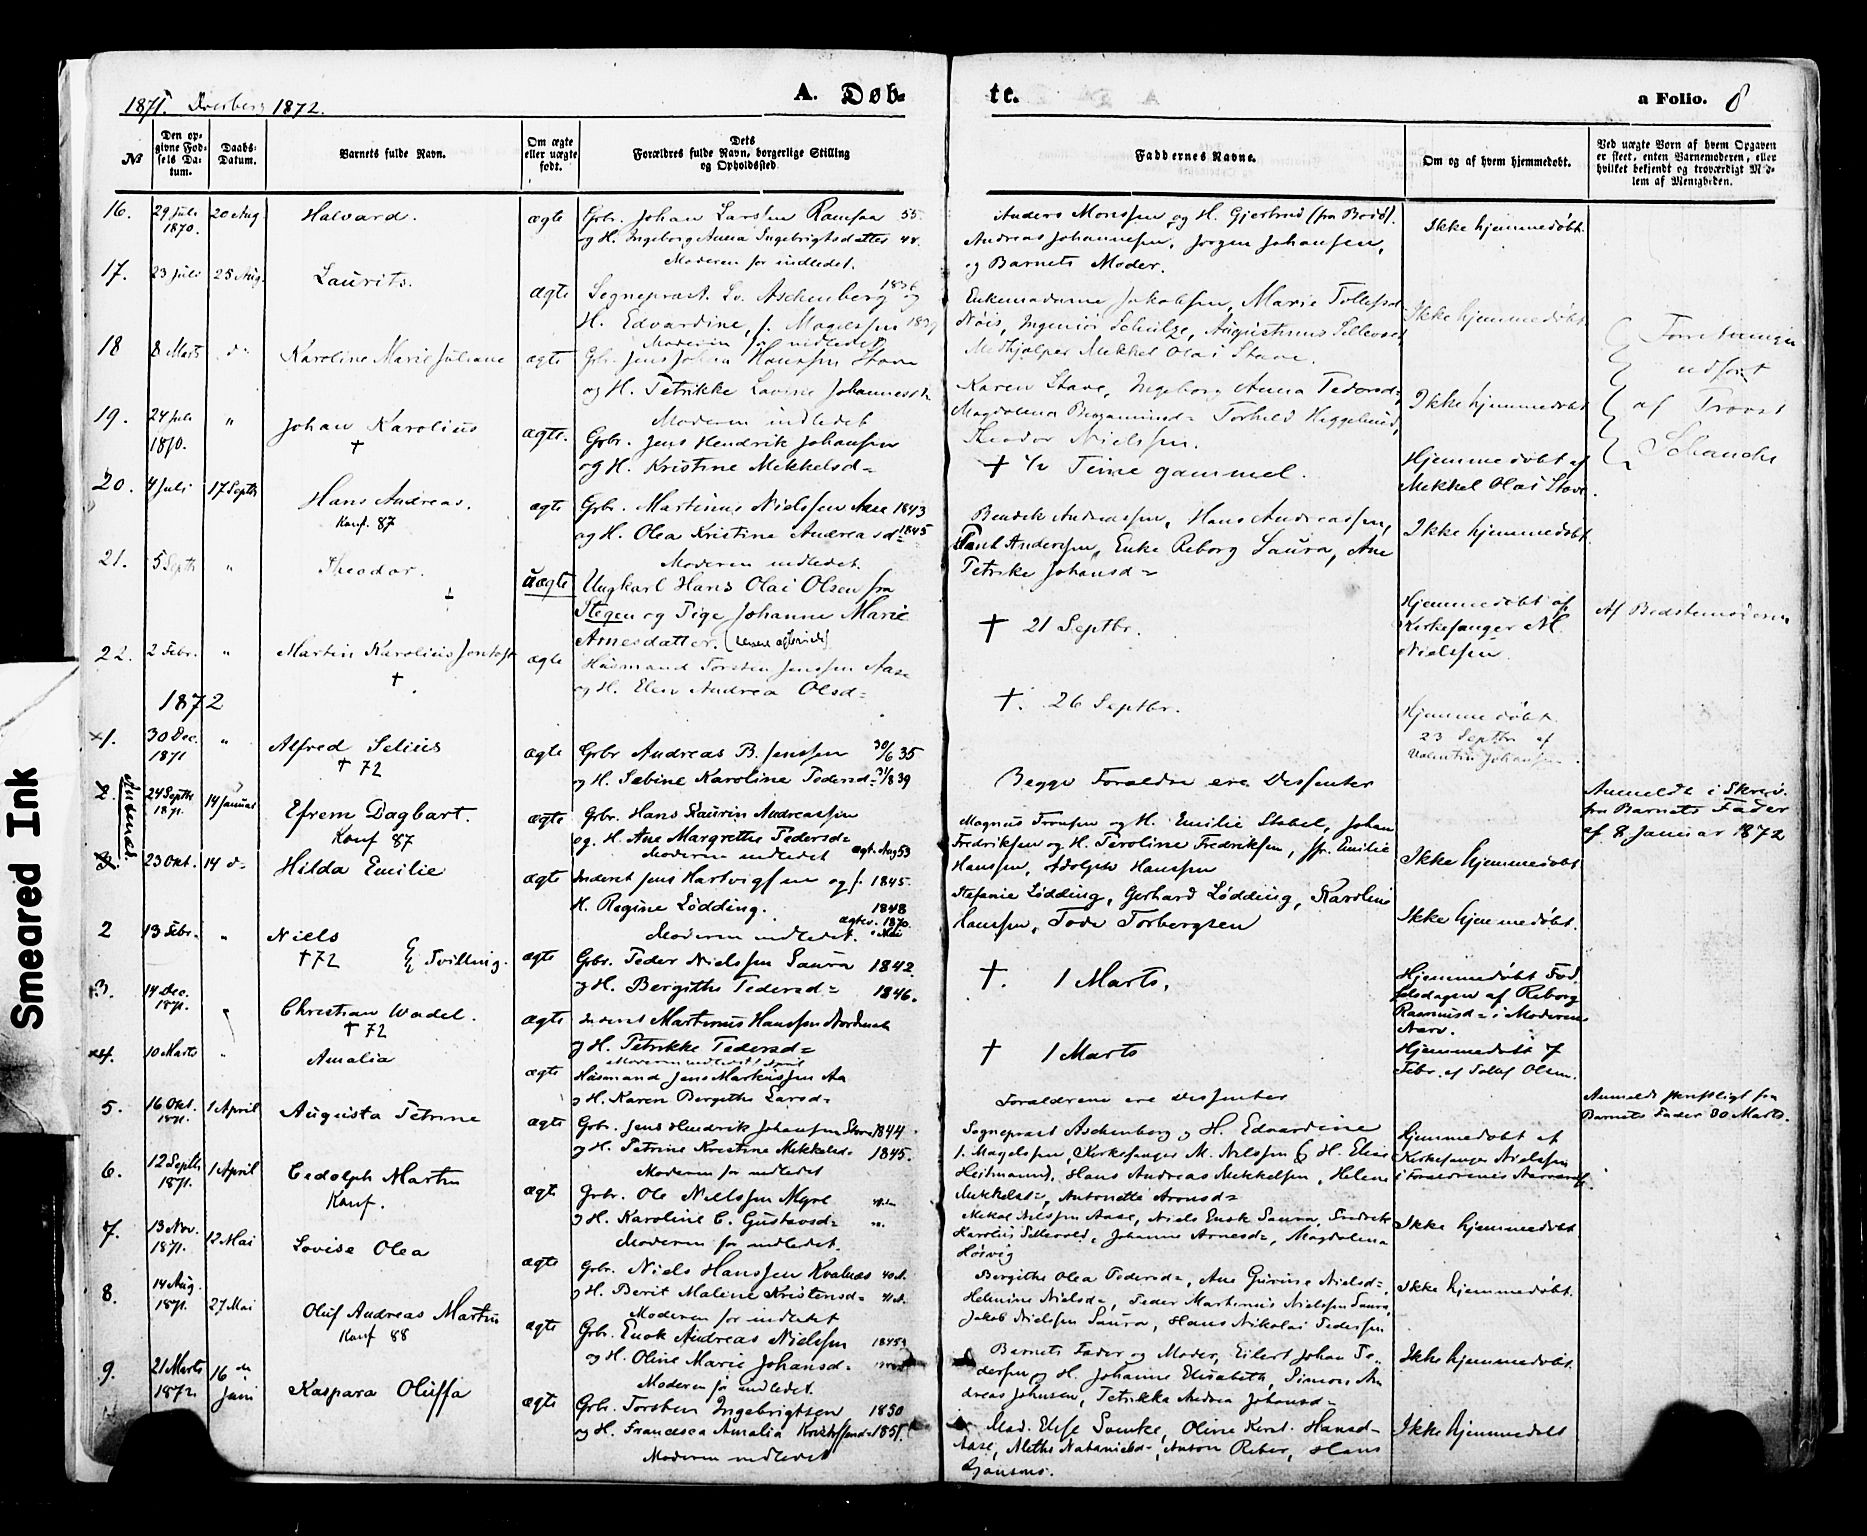 1871. Dverberg 1872.
A. Døb-
te.
a Folio. 8
No
Den opgivne Fødsels Datum.
Daabs-Datum.
Barnets fulde Navn.
Om ægte eller uægte født.
Dets Forældres fulde Navn, borgerlige Stilling og Opholdssted.
Faddernes Navne.
Om og af hvem hjemmedøbt.
Ved uægte Børn af hvem Opgaven er skeet, enten Barnemoderen, eller hvilket bekjendt og troværdigt Medlem af Menigheden.
16.
29 Juli 1870.
20 Aug.
Halvard.
ægte
Gbr. Johan Larssen Ramsaa 55.
og H. Ingeborg Anna Ingebrigtsdatter
Moderen for indledet.
Anders Monssen og H. Gjertrud (fra Bodø).
Andreas Johannesen, Jørgen Johansen,
og Barnets Moder.
Ikke hjemmedøbt.
17.
23 Juli
25 Aug.
Laurits.
ægte
Sogneprest Lv. Aschenberg og
H. Edvardine, f. Magelssen
Moderen for indledet
Enkemadame Jakobsen, Marie
Ingeniør Schulze, Augustinus Sellevold
Medhjælper Mekkel Olai Stave.
Ikke hjemmedøbt
18
8 Marts
d-
Karoline Marie Juliane
ægte
Gbr. Jens Johan Hanssen Stave
og H. Petrikke Lovise Johannesd-
Moderen indledet
Karen Stave, Ingeborg Anna Pedersd-,
Magdalena Benjaminsd-
Theodor Nielsen.
Ikke hjemmedøbt
Forretningen
udført
af Provst
Schanche
19.
24 Juli 1870.
"
Johan Karolius
†
ægte.
Gbr. Jens Hendrik Johansen
og H. Kristine Mekkelsd-
† ½ Time gammel.
Hjemmedøbt af
Mekkel Olai Stave.
20.
4 Juli
17 Septbr
Hans Andreas.
Konf. 87
ægte
Gbr. Martinus Nielssen Aase 1843
og H. Olea Kristine Andreasd- 1845
Moderen indledet.
Bendik Andreassen, Hans Andreassen,
Paul Anderssen, Enke Reborg Saura, Ane
Petrike Johansd-
Ikke hjemmedøbt.
21.
5 Septbr
"
Theodor.
†
uægte
Ungkarl Hans Olai Olsen fra
Stegen og Pige Johanne Marie
Arnesdatter.
† 21 Septbr.
Hjemmedøbt af
Kirkesanger M.
Nielssen.
Af Bedstemoderen
22.
2 Febr.
"
Martin Karolius Jentoft
†
ægte
Husmand Torsten Jenssen Aase
og H. Elen Andrea Olsd-
†. 26 Septbr.
Hjemmedøbt
23 Septbr af
Valentin Johansen.
1872
1.
30 Dec. 1871
"
Alfred Selius
† 72
ægte
Gbr Andreas B. Jenssen 30/6 35
og H. Sabine Karoline Pedersd- 31/8 39
Begge Forældre ere Dissenter
Anmeldt i Skriv.
fra Barnets Fader
af 8 Januar 1872
2.
24 Septbr 1871.
14 Januar
Efrem Dagbart.
Konf 87
ægte
Gbr. Hans Laurin Andreassen
og. H. Ane Margrethe Pedersd-
Moderen indledet
Magnus Tronsen og H. Emilie Stabel, Johan
Fredriksen og H. Peroline Fredriksen, Jfr. Emilie
Hanssen, Adolph Hanssen
Ikke hjemmedøbt
23 Okt.
14 d-
Hilda Emilie
ægte
Inderst Jens Hartvigsen og f. 1845.
H. Regine Lødding. 1848
Moderen indledet. ægtev. 1870. Mai
Stefanie Lødding, Gerhard Lødding, Karoline
Hanssen, Tode Torbergsen
Ikke hjemmedøbt.
2
13 Febr.
"
Niels
† 72
Tvilling.
ægte
Gbr. Peder Nielssen Saura 1842.
og H. Bergithe Pedersd- 1846.
†. 1 Marts.
Hjemmedøbt Fød-
selsdagen af Reborg
Rasmusd- i Moderens
3.
14 Dec. 1871.
Christian Wadel.
† 72
ægte
Inderst Martinus Hanssen
og H. Petrikke Pedersd-
† 1 Marts
Hjemmedøbt 7
Febr. af Olsen.
4.
10 Marts
"
Amalia
ægte
Husmand Jens Markussen Aa
og H. Karen Bergithe Larsd-
Forældrene ere Dissenter
Anmeldt skriftligt fra
Barnets Fader 30 Marts.
5.
16 Okt. 1871.
1 April
Augusta Petrine
ægte
Gbr. Jens Hendrik Johansen Stave 1844.
og H. Petrine Kristine Mekkelsd- 1845.
Moderen for indledet
Sogneprest Aschenberg og H. Edvardine
f. Magelssen, Kirkesanger M. Nielssen & H. Elise
Heitmann, Hans Andreas Mekkelsen, Helene
Mekkelsd-, Antonette Arnesd-
Hjemmedøbt af
Kirkesanger Nielssen
i Forældrenes
6.
12 Septbr 1871.
1 April
Cedolph Martin
Konf.
ægt
Gbr. Ole Nielssen Myre
og H. Karoline C. Gustavsd-
Moderen for indledet.
Mekal Nilssen Aase, Niels Enok Saura, Fredrik
Karolus Sellevold, Johanna Arnesd-, Magdalena
Høivig
Ikke hjemmedøbt.
7.
13 Nov. 1871.
12 Mai
Lovise Olea
ægte
Gbr. Niels Hanssen Kvalnæs
og H. Berit Maline Kristensd-
Moderen for indledet
Bergithe Olea Pedersd-, Ane Gurine Nielsd-,
Helmine Nielsd-, Peder Martinus Nielssen Saura,
Jakob Nielssen Saura, Hans Nikolai Pederssen
Ikke hjemmedøbt.
8.
14 Aug. 1871.
27 Mai
Oluf Andreas Martin
Konf 88
ægte
Gbr. Enok Andreas Nielssen 1845
og H. Oline Marie Johansd-
Moderen for indledet.
Barnets Fader og Moder, Eilert Johan Pe-
dersen og H. Johanne Elisabeth, Simon An-
dreas Johnsen, Petrikka Andrea Johansd-
Ikke hjemmedøbt.
9.
21 Marts 1872.
16 de Juni
Kaspara Oluffa
ægte
Gbr. Torsten Ingebrigtsen 1850
og H. Francisca Amalia 1851.
Moderen indledet
Mad. Else Oline Hansd-
Aase, Anton Reber, Hans
Ikke hjemmedøbt
Smeared Ink